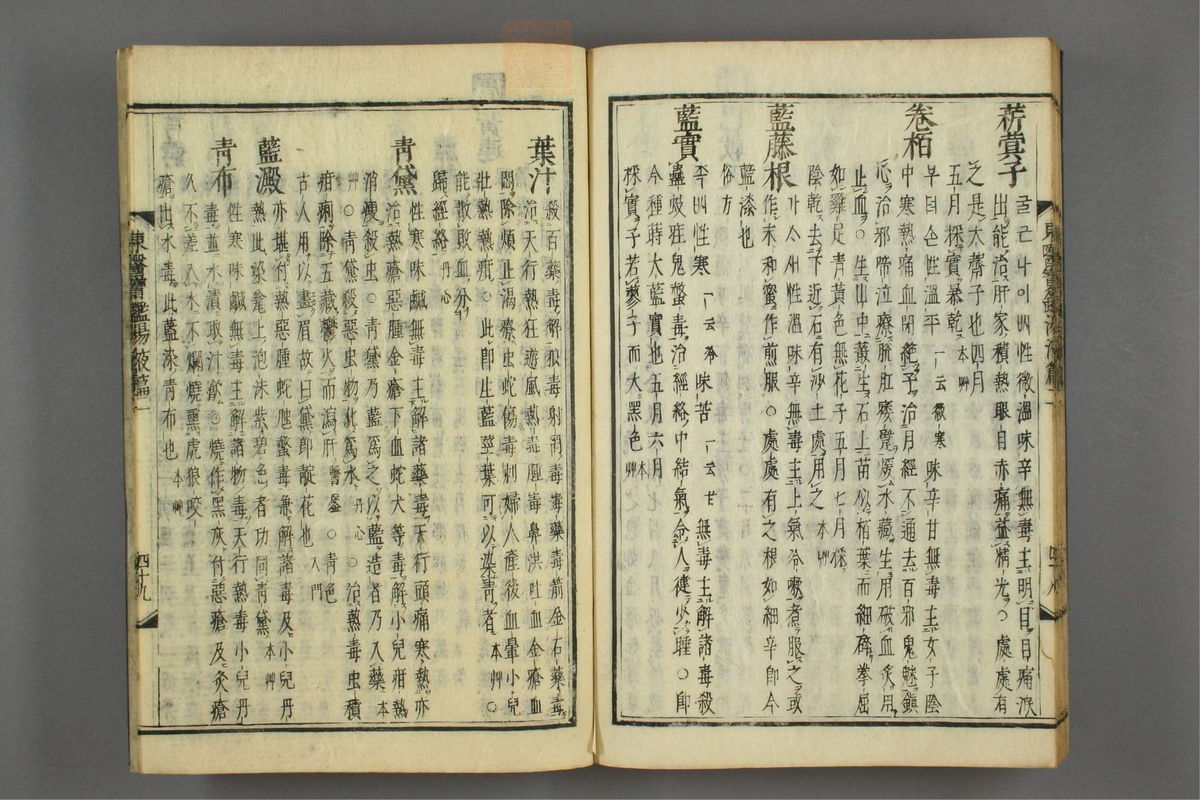 菥蓂子
굴근나이㓨性微溫味辛無毒主明目目痛淚
出能治肝家積熱眼目赤痛益精光○處處有
之是大薺子也四月
五月採實暴乾本艸
卷栢
부텨손性溫平一云微寒味辛甘無毒主女子陰
中寒熱痛血閉絶子治月經不通去百邪鬼魅鎭
心治邪啼泣療脫肛痿躄煖水藏生用破血炙用
止血○生山中叢生石上苗似栢葉而細碎拳屈
如雞足青黃色無花子五月七月採
陰乾去下近石有沙土處用之本艸
藍藤根
가사새性溫味辛無毒主上氣冷嗽煮服之或
作末和蜜作煎服○處處有之根如細辛卽今
藍漆也
俗方
藍實
性寒一云冷味苦一云甘無毒主解諸毒殺
蠱蚑疰鬼螫毒治經絡中結氣令人健少睡○卽
今種蒔大藍實也五月六月
採實子若蓼子而大黑色本艸
葉汁
殺石藥毒解狼毒射罔毒毒藥毒箭金石藥毒
治天行熱狂遊風熱毒腫毒鼻洪吐血金瘡血
悶除煩止渴療虫蛇傷毒刺婦人產後血暈小兒
壯熱熱疳○此卽生藍莖葉可以染靑者本艸○
能散敗血分
歸經絡丹心
靑黛
性寒味鹹無毒主解諸藥毒天行頭痛寒熱亦
治熱瘡惡腫金瘡下血蛇犬等毒解小兒疳熱
消瘦殺虫○靑黛乃藍爲之以藍造者乃入藥本
艸○靑黛殺惡虫物化爲水丹心○治熱毒虫積
疳痢除五藏鬱火而瀉肝醫鑒○靑色
古人用以畫眉故曰黛卽靛花也入門
藍澱
亦堪付熱惡腫蛇虺螫毒兼解諸毒及小兒丹
熱此染瓮上泡沫紫碧色者功同靑黛本艸
靑布
性寒味鹹無毒主解諸物毒天行熱毒小兒丹
毒並水漬取汁飮○燒作黑灰付惡瘡及灸瘡
久不差入水不爛燒熏虎狼咬
瘡出水毒此藍染靑布也本艸
四十九